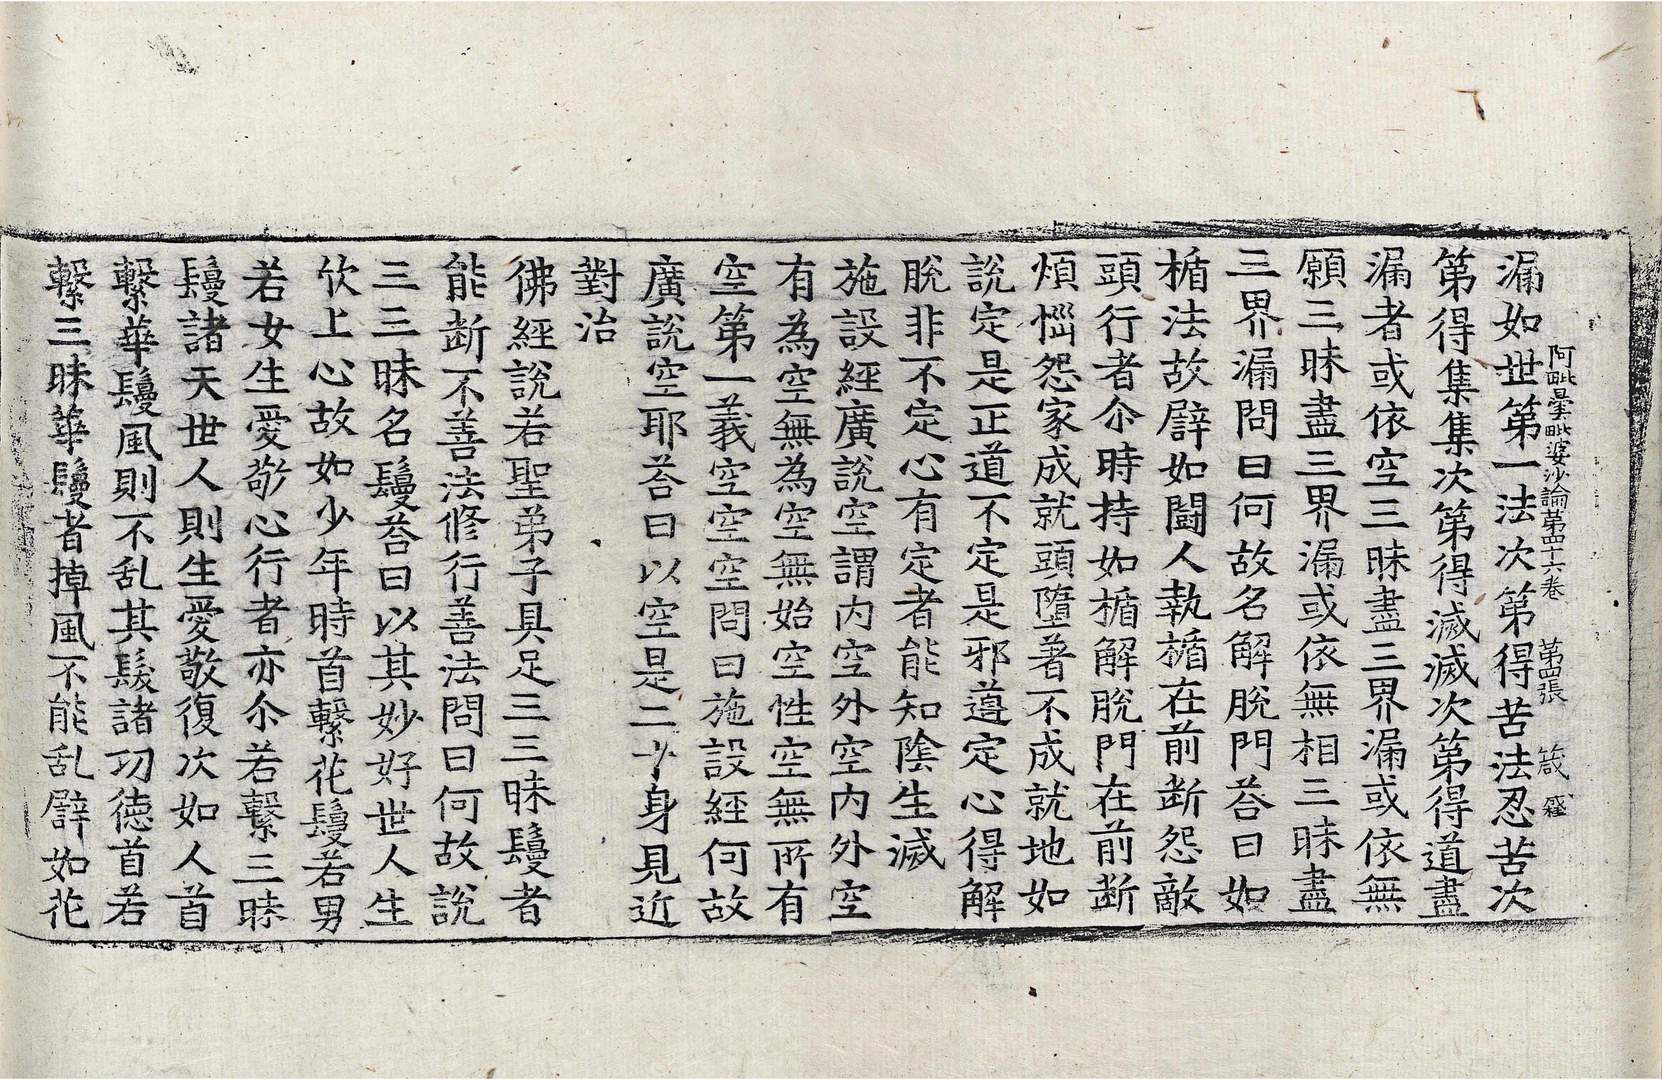 阿毗曇毗婆沙論第四十六卷 第四張 箴
漏如世第一法次第得苦法忍苦次
第得集集次第得滅滅次第得道盡
漏者或依空三昧盡三界漏或依無
願三昧盡三界漏或依無相三昧盡
三界漏問曰何故名解脫門荅曰如
楯法故譬如鬪人執楯在前斷怨敵
頭行者尒時持如楯解脫門在前斷
煩惱怨家成就頭墮著不成就地如
說定是正道不定是邪道定心得解
脫非不定心有定者能知陰生滅
施設經廣說空謂內空外空內外空
有為空無為空無始空性空無所有
空第一義空空空問曰施設經何故
廣說空耶荅曰以空是二十身見近
對治
佛經說若聖弟子具足三三昧鬘者
能斷不善法修行善法問曰何故說
三三昧名鬘荅曰以其妙好世人生
欣上心故如少年時首繫花鬘若男
若女生愛敬心行者亦尒若繫三昧
鬘諸天世人則生愛敬復次如人首
繫華鬘風則不乱其髮諸功德首若
繫三昧華鬘者掉風不能乱譬如花